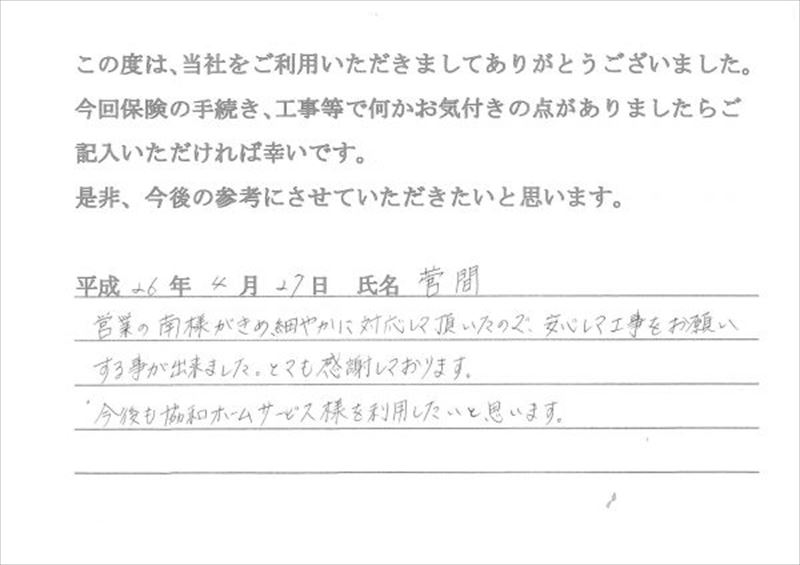 この度は、当社をご利用いただきましてありがとうございました。
今回保険の手続き、工事等で何かお気付きの点がありましたらご
記入いただければ幸いです。
是非、今後の参考にさせていただきたいと思います。
平成 26 年 4 月 27 日 氏名 菅間
営業の南様がきめ細やかに対応して頂いたので、安心して工事をお願い
する事が出来ました。とても感謝しております。
今後も協和ホームサービス様を利用したいと思います。